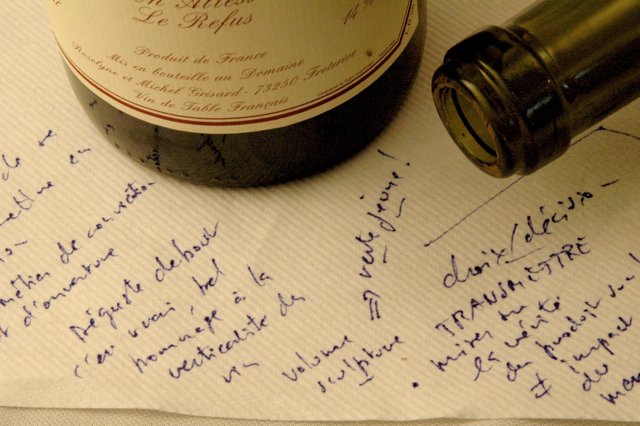 Le Refus
14 %
Produit de France
Mis en bouteille au Domaine
Roselyne et Michel Grisard - 73250 Freterive
Vin de Table Français
de se
mettre en
métier de conviction
et d'ouverture
Déguste debout
c'en vrai, bel
hommage à la
verticalité du
vin
volume
sculpture
⇒ verte jeune!
choix/décision
TRANSMETTRE
• mises en
la vérité
du produit sur l
≠ impact
du